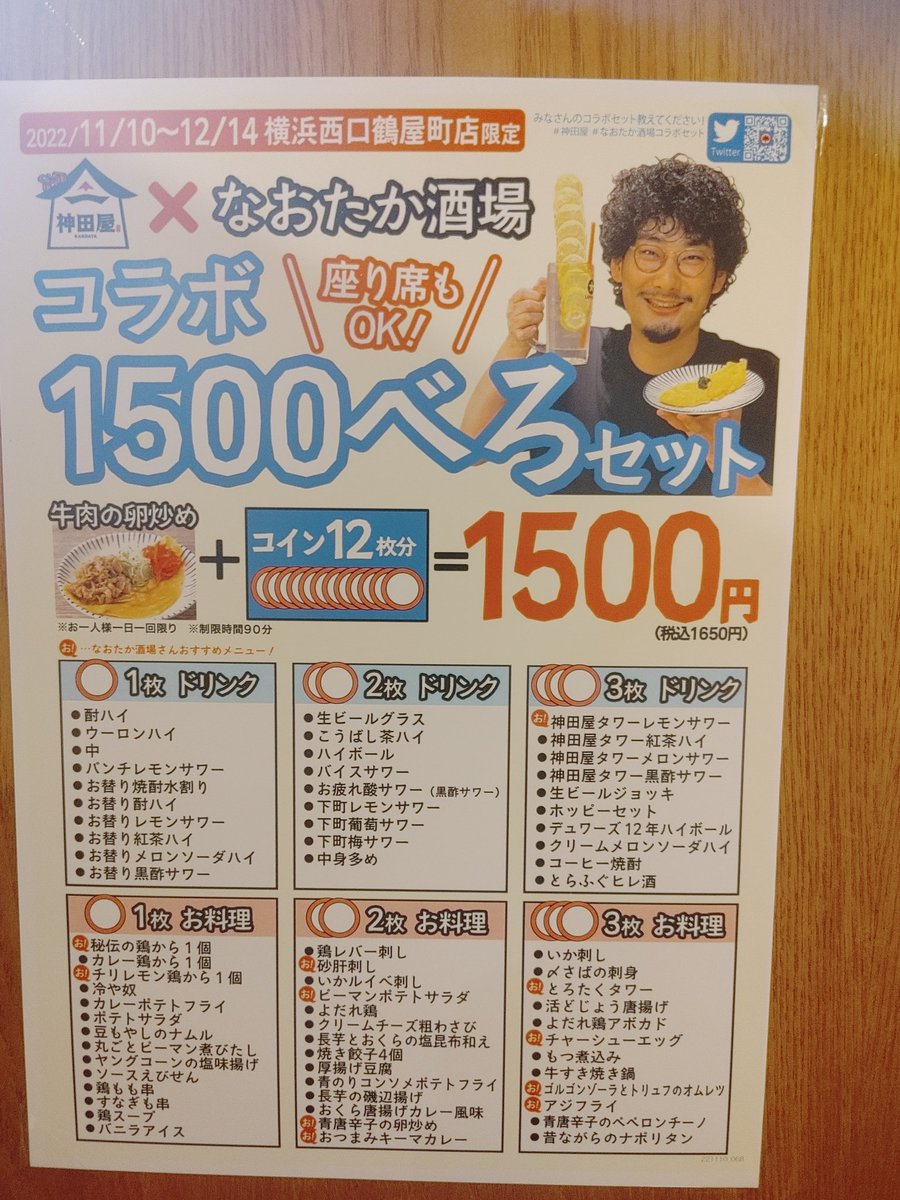 2022/11/10〜12/14 横浜西口鶴屋町店限定
みなさんのコラボセット教えてください!
#神田屋 #なおたか酒場コラボセット
Twitter
神田屋
KANDAYA
× なおたか酒場
コラボ
座り席も
OK!
1500べろセット
牛肉の卵炒め
+
コイン12枚分
=1500円
(税込1650円)
※お一人様一日一回限り ※制限時間90分
お!…なおたか酒場さんおすすめメニュー!
1枚 ドリンク
●酎ハイ
●ウーロンハイ
●中
●バンチレモンサワー
●お替り焼酎水割り
●お替り酎ハイ
●お替りレモンサワー
●お替り紅茶ハイ
●お替りメロンソーダハイ
●お替り黒酢サワー
2枚 ドリンク
●生ビールグラス
●こうばし茶ハイ
●ハイボール
●バイスサワー
●お疲れ酸サワー(黒酢サワー)
●下町レモンサワー
●下町葡萄サワー
●下町梅サワー
●中身多め
3枚 ドリンク
お!神田屋タワーレモンサワー
●神田屋タワー紅茶ハイ
●神田屋タワーメロンサワー
●神田屋タワー黒酢サワー
●生ビールジョッキ
●ホッピーセット
●デュワーズ12年ハイボール
●クリームメロンソーダハイ
●コーヒー焼酎
●とらふぐヒレ酒
1枚 お料理
お!秘伝の鶏から1個
●カレー鶏から1個
お!チリレモン鶏から1個
●冷や奴
●カレーポテトフライ
●ポテトサラダ
●豆もやしのナムル
●丸ごとピーマン煮びたし
●ヤングコーンの塩味揚げ
●ソースえびせん
●鶏もも串
●すなぎも串
●鶏スープ
●バニラアイス
2枚 お料理
●鶏レバー刺し
お!砂肝刺し
●いかルイベ刺し
お!ピーマンポテトサラダ
●よだれ鶏
●クリームチーズ粗わさび
●長芋とおくらの塩昆布和え
●焼き餃子4個
●厚揚げ豆腐
●青のりコンソメポテトフライ
●長芋の磯辺揚げ
●おくら唐揚げカレー風味
お!青唐辛子の卵炒め
お!おつまみキーマカレー
3枚 お料理
●いか刺し
●〆さばの刺身
お!とろたくタワー
●活どじょう唐揚げ
●よだれ鶏アボカド
お!チャーシューエッグ
●もつ煮込み
●牛すき焼き鍋
お!ゴルゴンゾーラとトリュフのオムレツ
お!アジフライ
●青唐辛子のペペロンチーノ
●昔ながらのナポリタン
221110_068